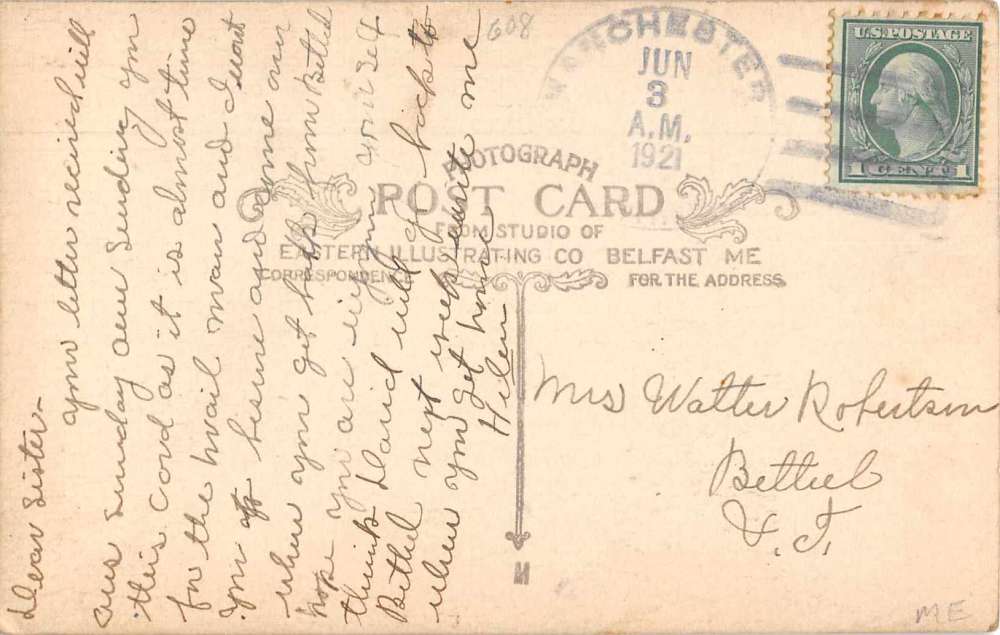 608
MANCHESTER
JUN
3
A.M.
1921
U.S. POSTAGE
1 CENT 1
PHOTOGRAPH
POST CARD
FROM STUDIO OF
EASTERN ILLUSTRATING CO BELFAST ME
CORRESPONDENCE
FOR THE ADDRESS
Dear Sister-
your letter received will
ans Sunday am sending you
this card as it is almost time
for the mail man and I want
you to besure and come over
when you get back from Bethel
hope you are enjoying your self
think David will go back to
Bethel next week write me
when you get home
Helen
Mrs Walter Robertson
Bethel
V.T.
M
ME